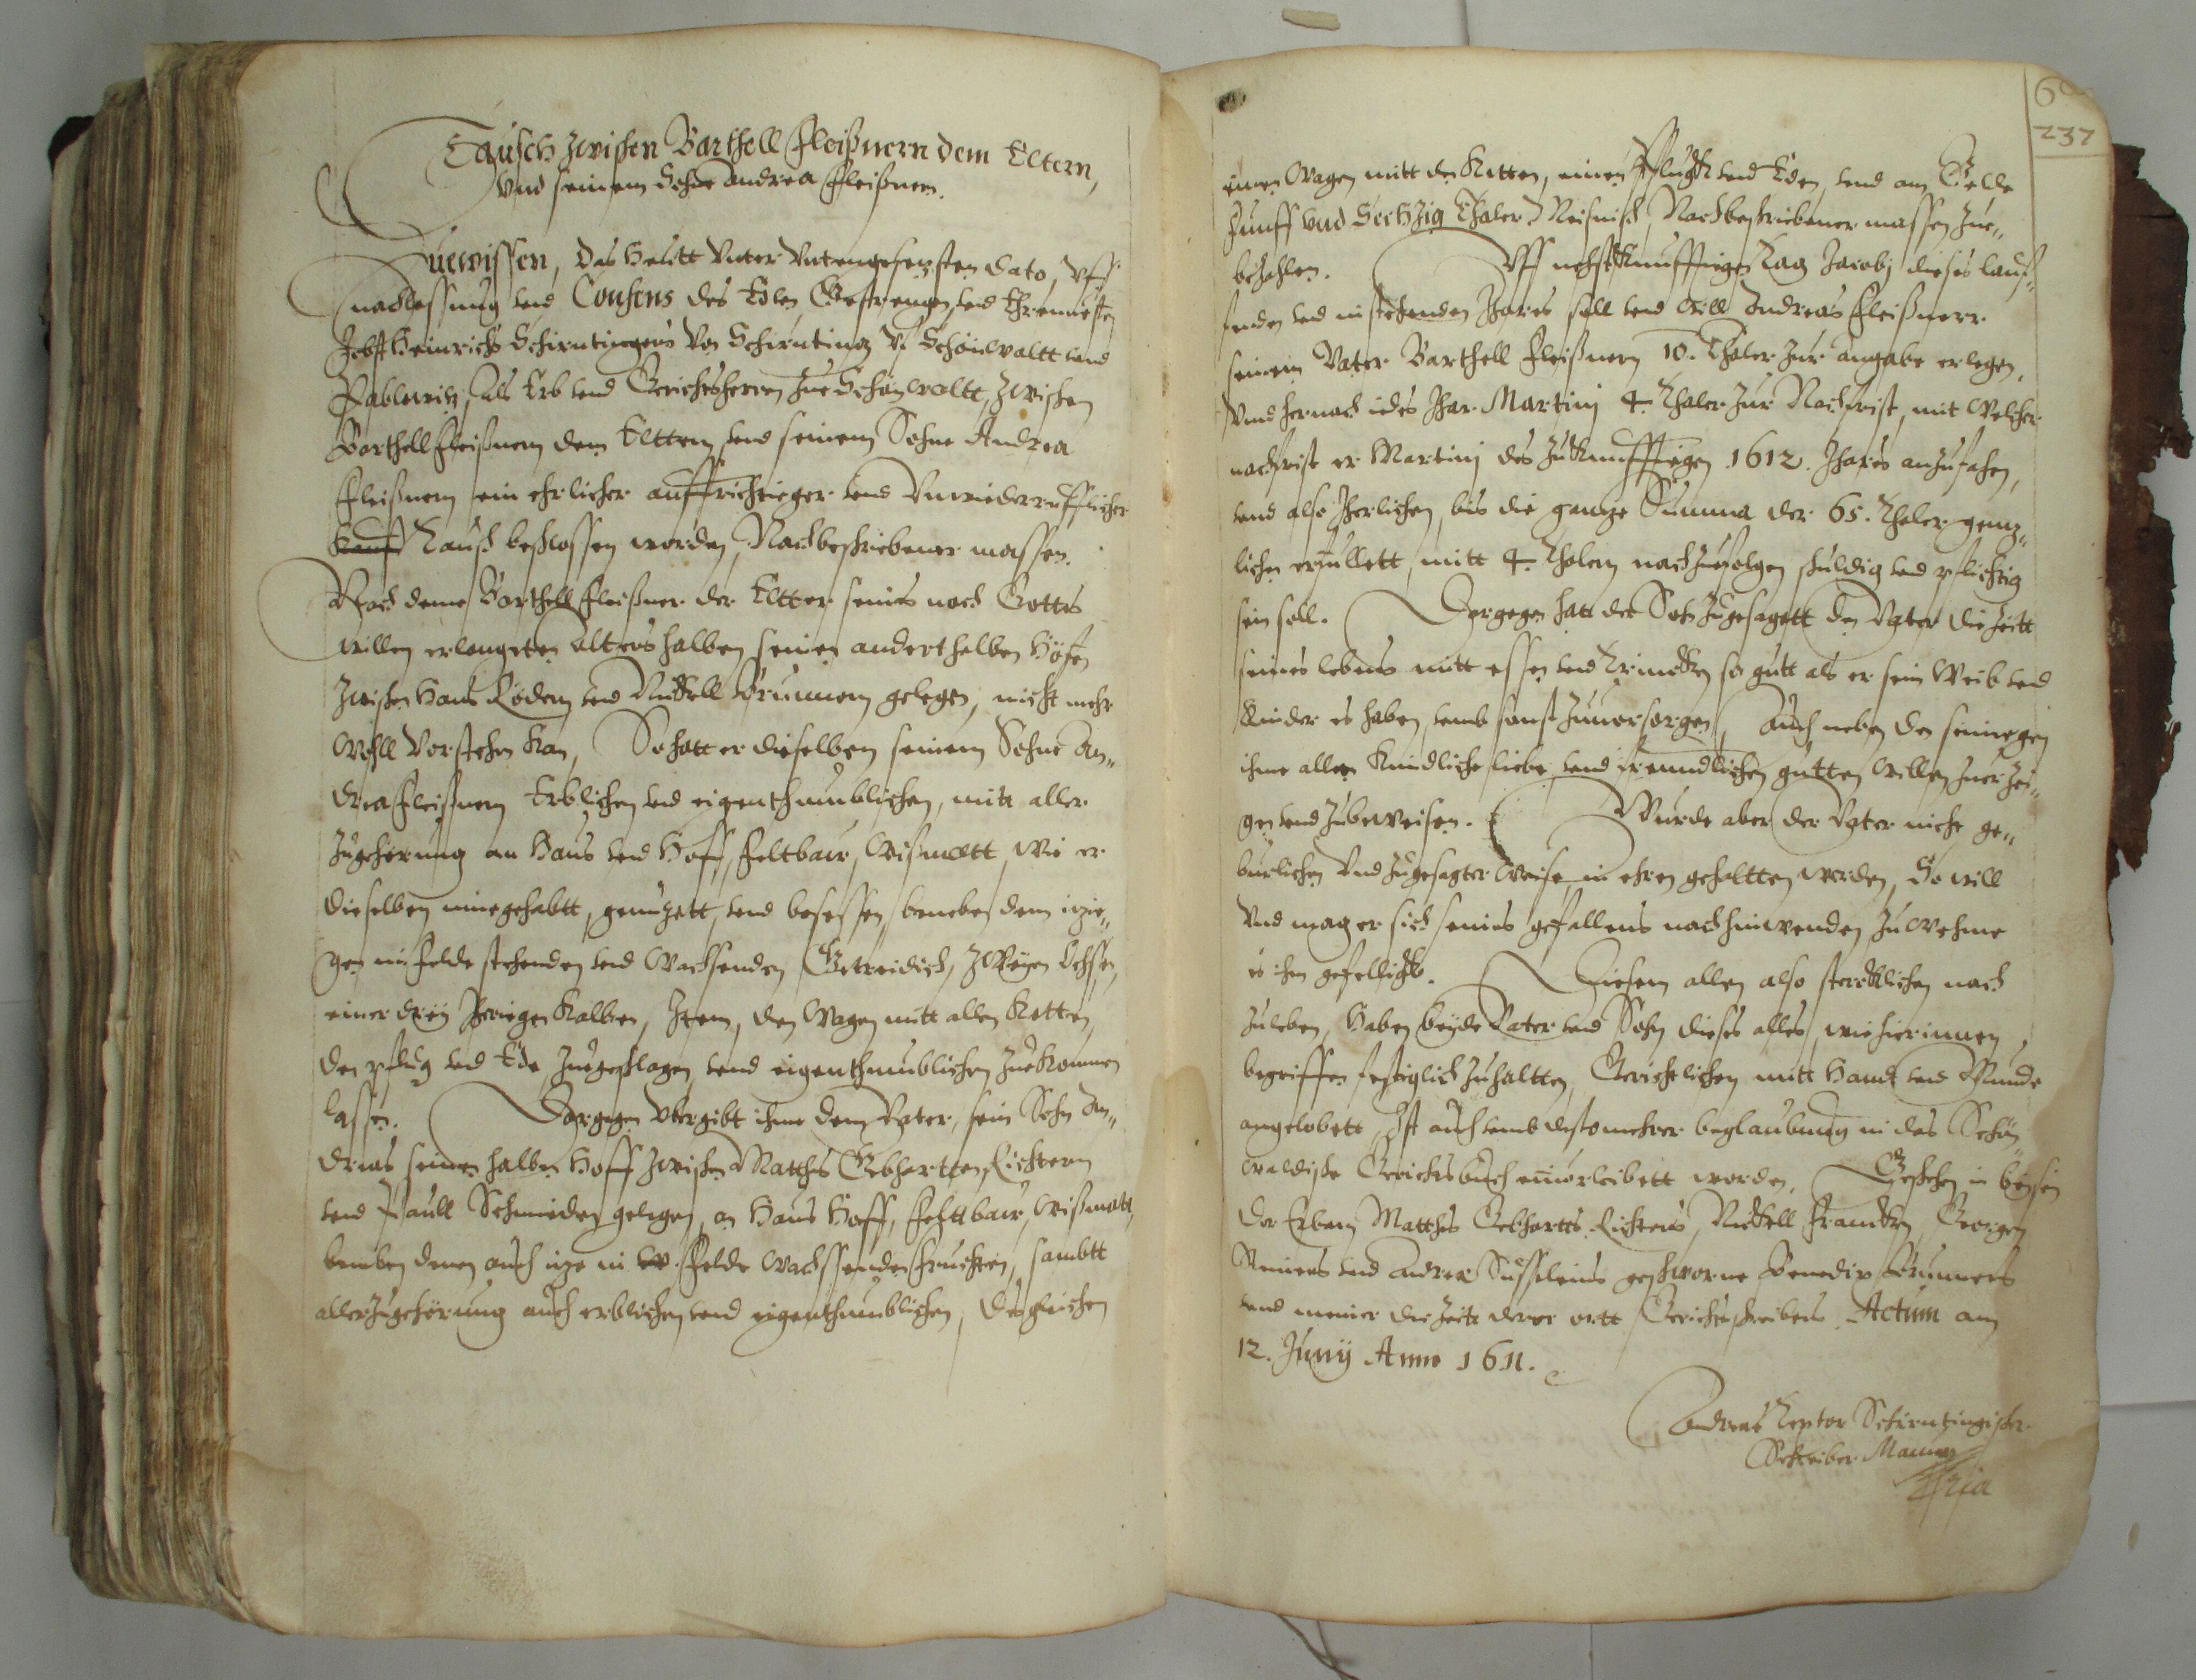 Tausch zwischen Barthell Fleißnern dem Eltern,
vnd seinem Sohne Andrea Fleißnern.
Zuewissen, das Heutt Vnter Vntengesetzten dato, Vff
nachlassung vnd Consens des Edlen, Gestrengen vnd Ehrnuesten
Jobst Heinrichs Schirntingers Von Schirnting V. Schönwaltt vnd
als Erb vnd Gerichtsherrn zue Schönwaltt, zwischen
Barthell Fleißnern dem Elttern vnd seinem Sohne Andrea
Fleißnern ein ehrlicher auffrichtieger vnd Vnwiederrufflicher
Kauff Tausch beschlossen worden, Nachbeschriebener massen.
Nach deme Barthell Fleißner der Eltter seines nach Gottes
willen erlangeten alters halben seinen anderthalben Höfen
zwischen Hans Lödern vnd Nickell Brunnern gelegen, nicht mehr
Wohll Vorstehen kan, So hatt er dieselben seinem Sohne An„
drea Fleißnern Erblichen vnd eigenthumblichen, mitt aller
Zugehörung an Haus vnd Hoff, Feltbaw, Wißmatt, wie er
dieselben innegehabtt, genuzett, vnd besessen, beneben dem izie„
gen im Felde stehenden vnd Wachsenden Getreidich, zweyen Ochssen,
einer drey Jheriegen Kalben, Item, den Wagen mitt allen Ketten,
den pflug vnd Ede, zuegeschlagen vnd eigenthumblichen zuekommen
lassen. Dargegen Vbergibt ihme dem Vater, sein Sohn An„
dreas seinen halben Hoff zwischen Matthes Gebhartten, Richtern
vnd Paull Schmieden gelegen, an Haus Hoff, Feltbaw, Wißmatt,
beneben denen auch izo im Felde Wachssenden Fruchten, sambtt
aller Zugehörung auch erblichen vnd eigenthumblichen, desgleichen
60
237
einen Wagen mitt den Ketten, einen Pflugk vnd Eden, vnd am Gelde
Funff vnd Sechzig Thaler Meisnisch, Nachbeschriebener massen zue„
bezahlen. Vff nehstkunfftiegen Tag Jacobj dieses lauf„
fenden vnd instehenden Jhares soll vnd will Andreas Fleißnerr
seinem Vater Barthell Fleißnern 10. Thaler zur Angabe erlegen,
Vnd hernach ides Jhar Martinj 4 Thaler zur Nachfrist, mit Welcher
nachfrist er Martinj des zukunfftiegen 1612. Jhares anzufahen,
vnd also Jherlichen, bis die ganze Summa der 65. Thaler genz„
lichen erfullett, mitt 4 Thalern nachzuefolgen schuldig vnd pflichtig
sein soll. Dargegen hatt der Sohn zugesagett den Vater die Zeitt
seines lebens mitt essen vnd Trincken so gutt als er sein Weib vnd
Kinder es haben, vmb sonst zuuorsorgen, Auch neben den seinegen
ihme allen Kindliche liebe vnd freundlichen gutten willen zuerzei„
gen vnd zubeweisen. Wurde aber der Vater nicht ge„
burlichen Vnd zugesagter Weise in ehren gehaltten werden, So will
Vnd mag er sich seines gefallens nach hinwenden zu Wehme
es ihm gefelligk. Diesem allen also stercklichen nach
zuleben, Haben beyde Vater vnd Sohn dieses alles, wie hierinnen
begriffen festiglich zuhaltten, Gerichtlichen mitt Handt vnd Munde
angelobett, Ist auch vmb destomehrer beglaubung in das Schön„
waldische Gerichtsbuch einuorleibett worden. Geschehen in beysein
der Erbarn Matthes Gebhartts Richters, Nickell Francken, Georgen
vnd Andrea Süssleins geschworne Benedix Brunners
vnd meiner der Zeitt derer ortt Gerichtschreibers. Actum am
12. Junij Anno 1611.
Andreas Schirntingischer
Schreiber Manu
ppria